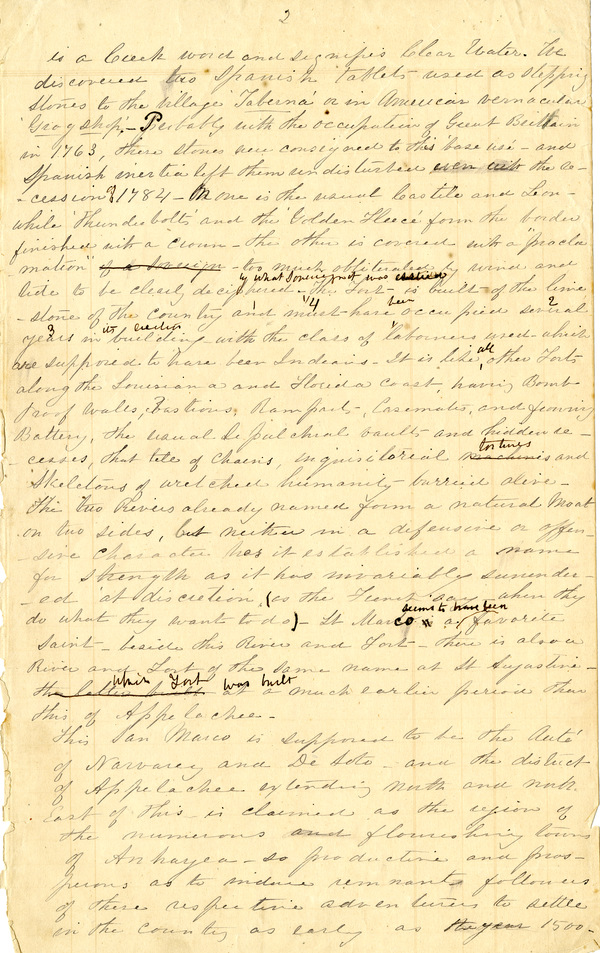 2
is a Creek word and signifies Clear Water. We
discovered two Spanish Tablets used as stepping
stones to the village 'Taberna' or in American vernacular
'Grog shop'. - Probably with the occupation of Great Britain
in 1763, these stones were consigned to this 'base use' - and
Spanish inertia left them undisturbed even with the ac-
-cession of 1784 - On one is the usual Castile and Leon -
while Thunderbolts and the Golden Fleece form the border
finished with a crown - the other is covered with a "procla
mation" of a sovereign - too much obliterated by wind and
by what Sovereign not
tide to be clearly deciphered - The Fort - is built of the lime
-stone of the country and must have been occupied several
years in its erection building with the class of laborers used - which
are supposed to have been Indians - It is like all other Forts
along the Louisiana and Florida coast, having Bomb
Proof walls, Bastions, Ramparts, Casemates, and frowning
Battery, the usual sepulchral vaults and hidden re-
-cesses, that tell of chains, inquisitorial tortures and
Skeletons of wretched humanity burried alive -
The two Rivers already named form a natural Moat
on two sides, but neither in a defensive or offen-
-sive character has it established a name
for strength as it has invariably surrender-
-ed at discretion, (as the French say, when they
do what they want to do) - St Marco seems to have been a favorite
Saint - beside this River and Fort - there is also a
River and Fort of the same name at St Augustine -
the latter which Fort was built at a much earlier period than
this of Appelachee -
This San Marco is supposed to be the Auté
of Narvarez and De Soto - and the district
of Appelachee extending north and north
East of this - is claimed as the region of
the numerous and flourishing towns
of Anhayea - so productive and pros-
perous as to induce remnants followers
of these respective adventurers to settle
in the country as early as the year 1500 -